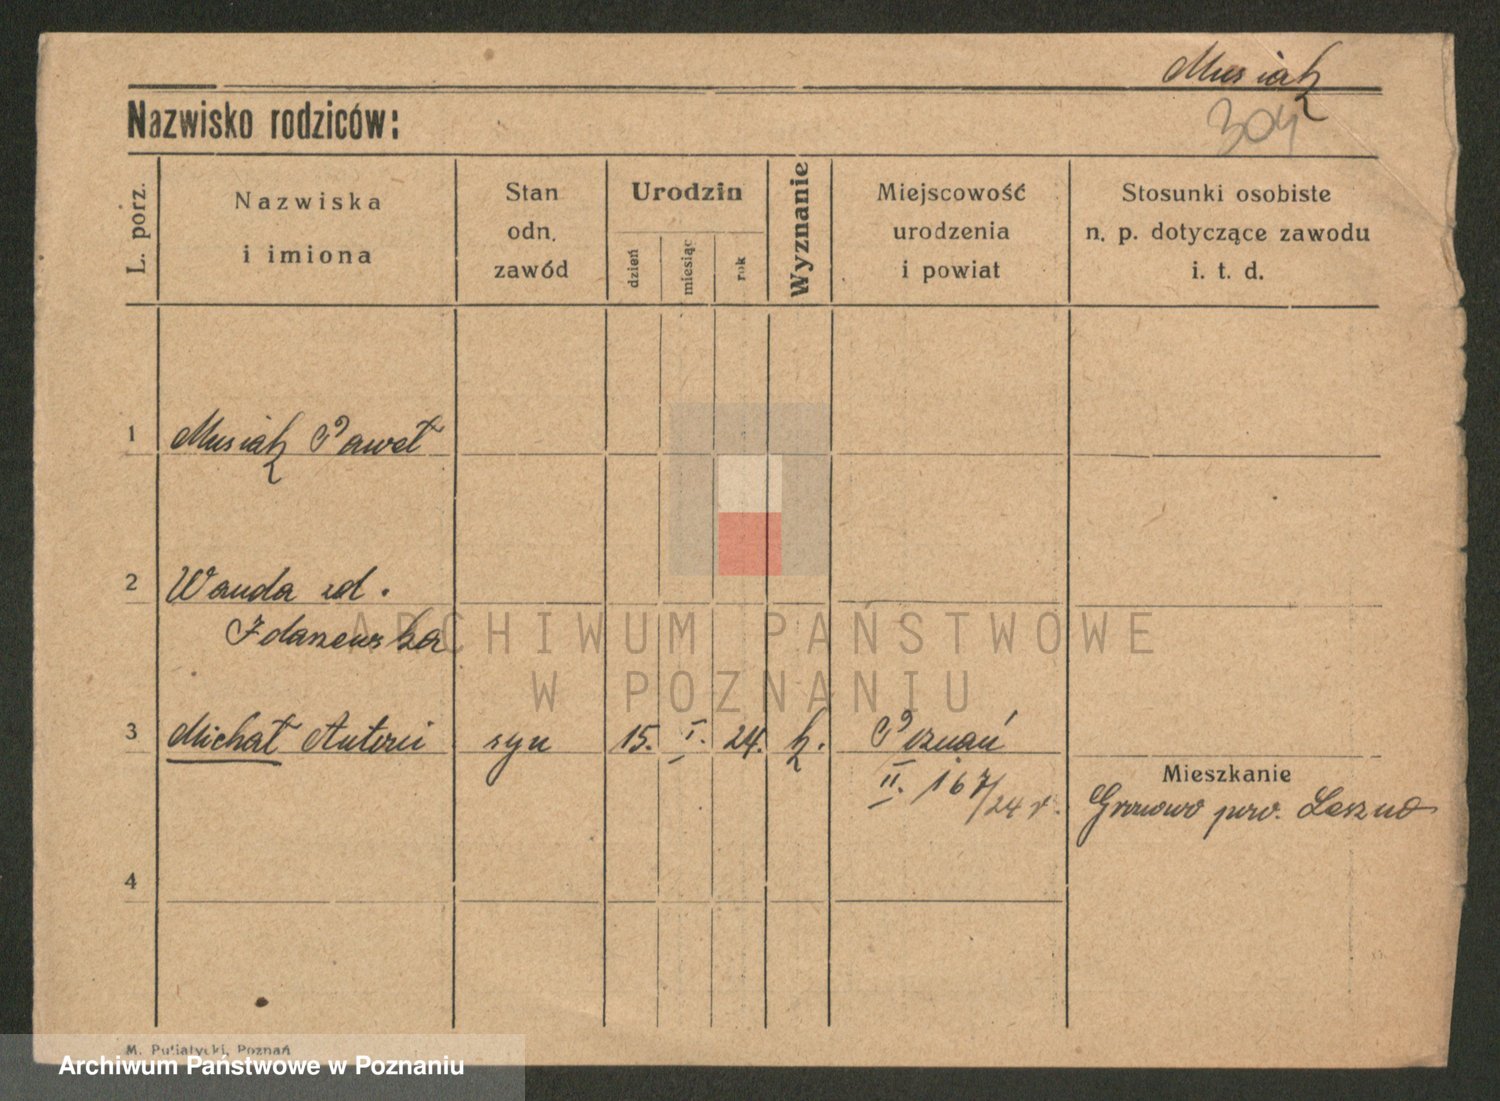 Musiak
304
Nazwisko rodziców:
L. porz.
Nazwiska
i imiona
Stan
odn.
zawód
Urodzin
dzień
miesiąc
rok
Wyznanie
Miejscowość
urodzenia
i powiat
Stosunki osobiste
n. p. dotyczące zawodu
i. t. d.
1 Musiak Paweł
2 Wanda zd.
Idaszewska
3 Michał Antoni syn 15. I. 24. k. Poznań
II. 167/24 r.
Mieszkanie
Gronowo pow. Leszno
4
ARCHIWUM PAŃSTWOWE
W POZNANIU
M. Putiatycki, Poznań
Archiwum Państwowe w Poznaniu